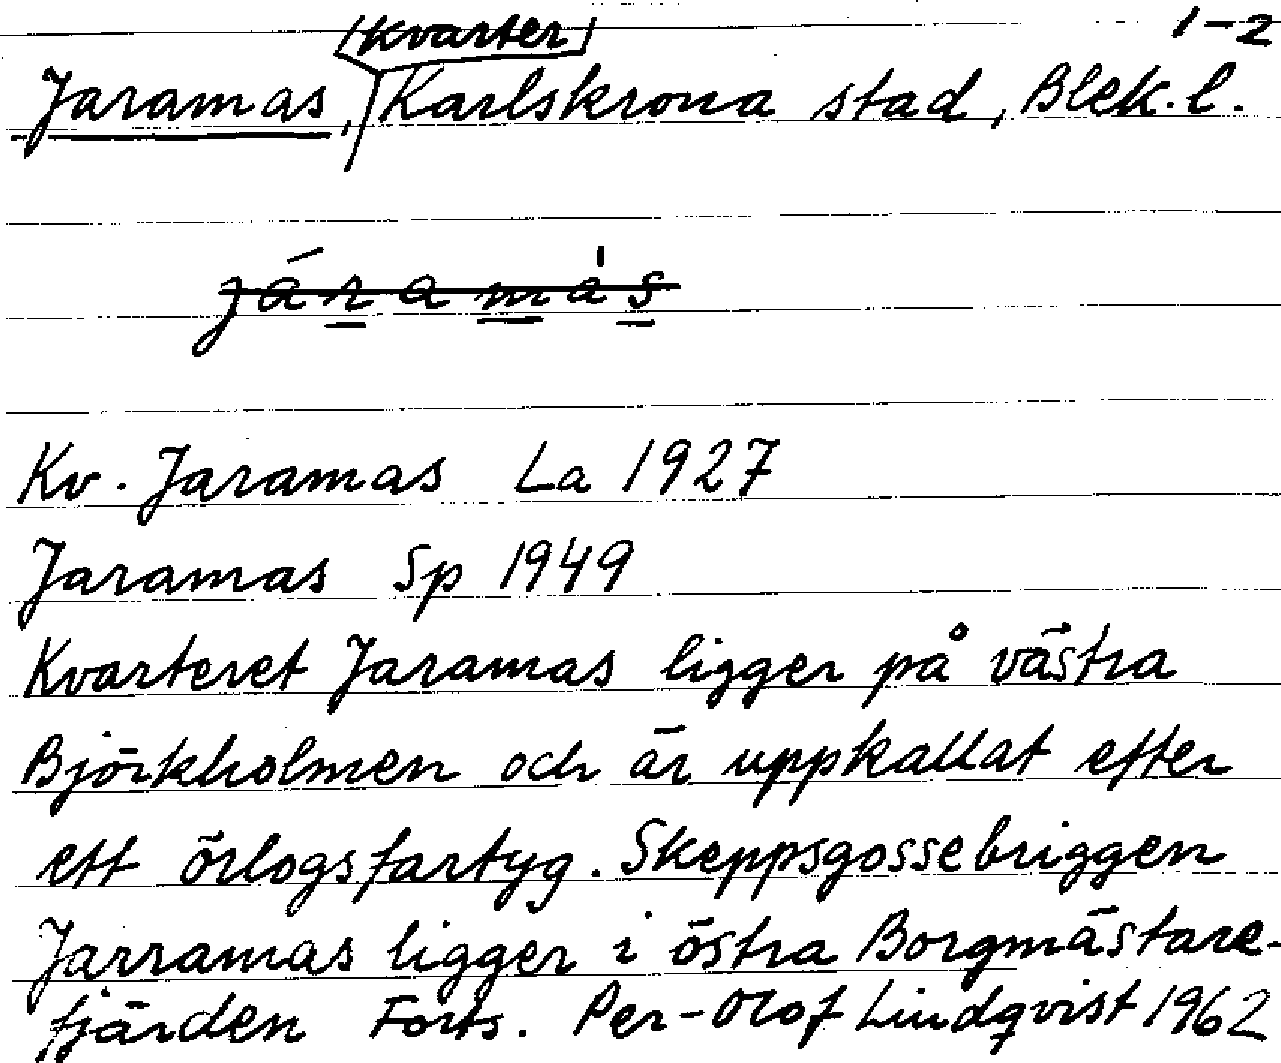 1-2
Jaramas, /Kvarter/ Karlskrona stad, Blek.l.
járamás
Kv. Jaramas La 1927
Jaramas Sp 1949
Kvarteret Jaramas ligger på västra
Björkholmen och är uppkallat efter
ett örlogsfartyg. Skeppsgossebriggen
Jarramas ligger i östra Borgmästare-
fjärden Forts. Per-Olof Lindqvist 1962